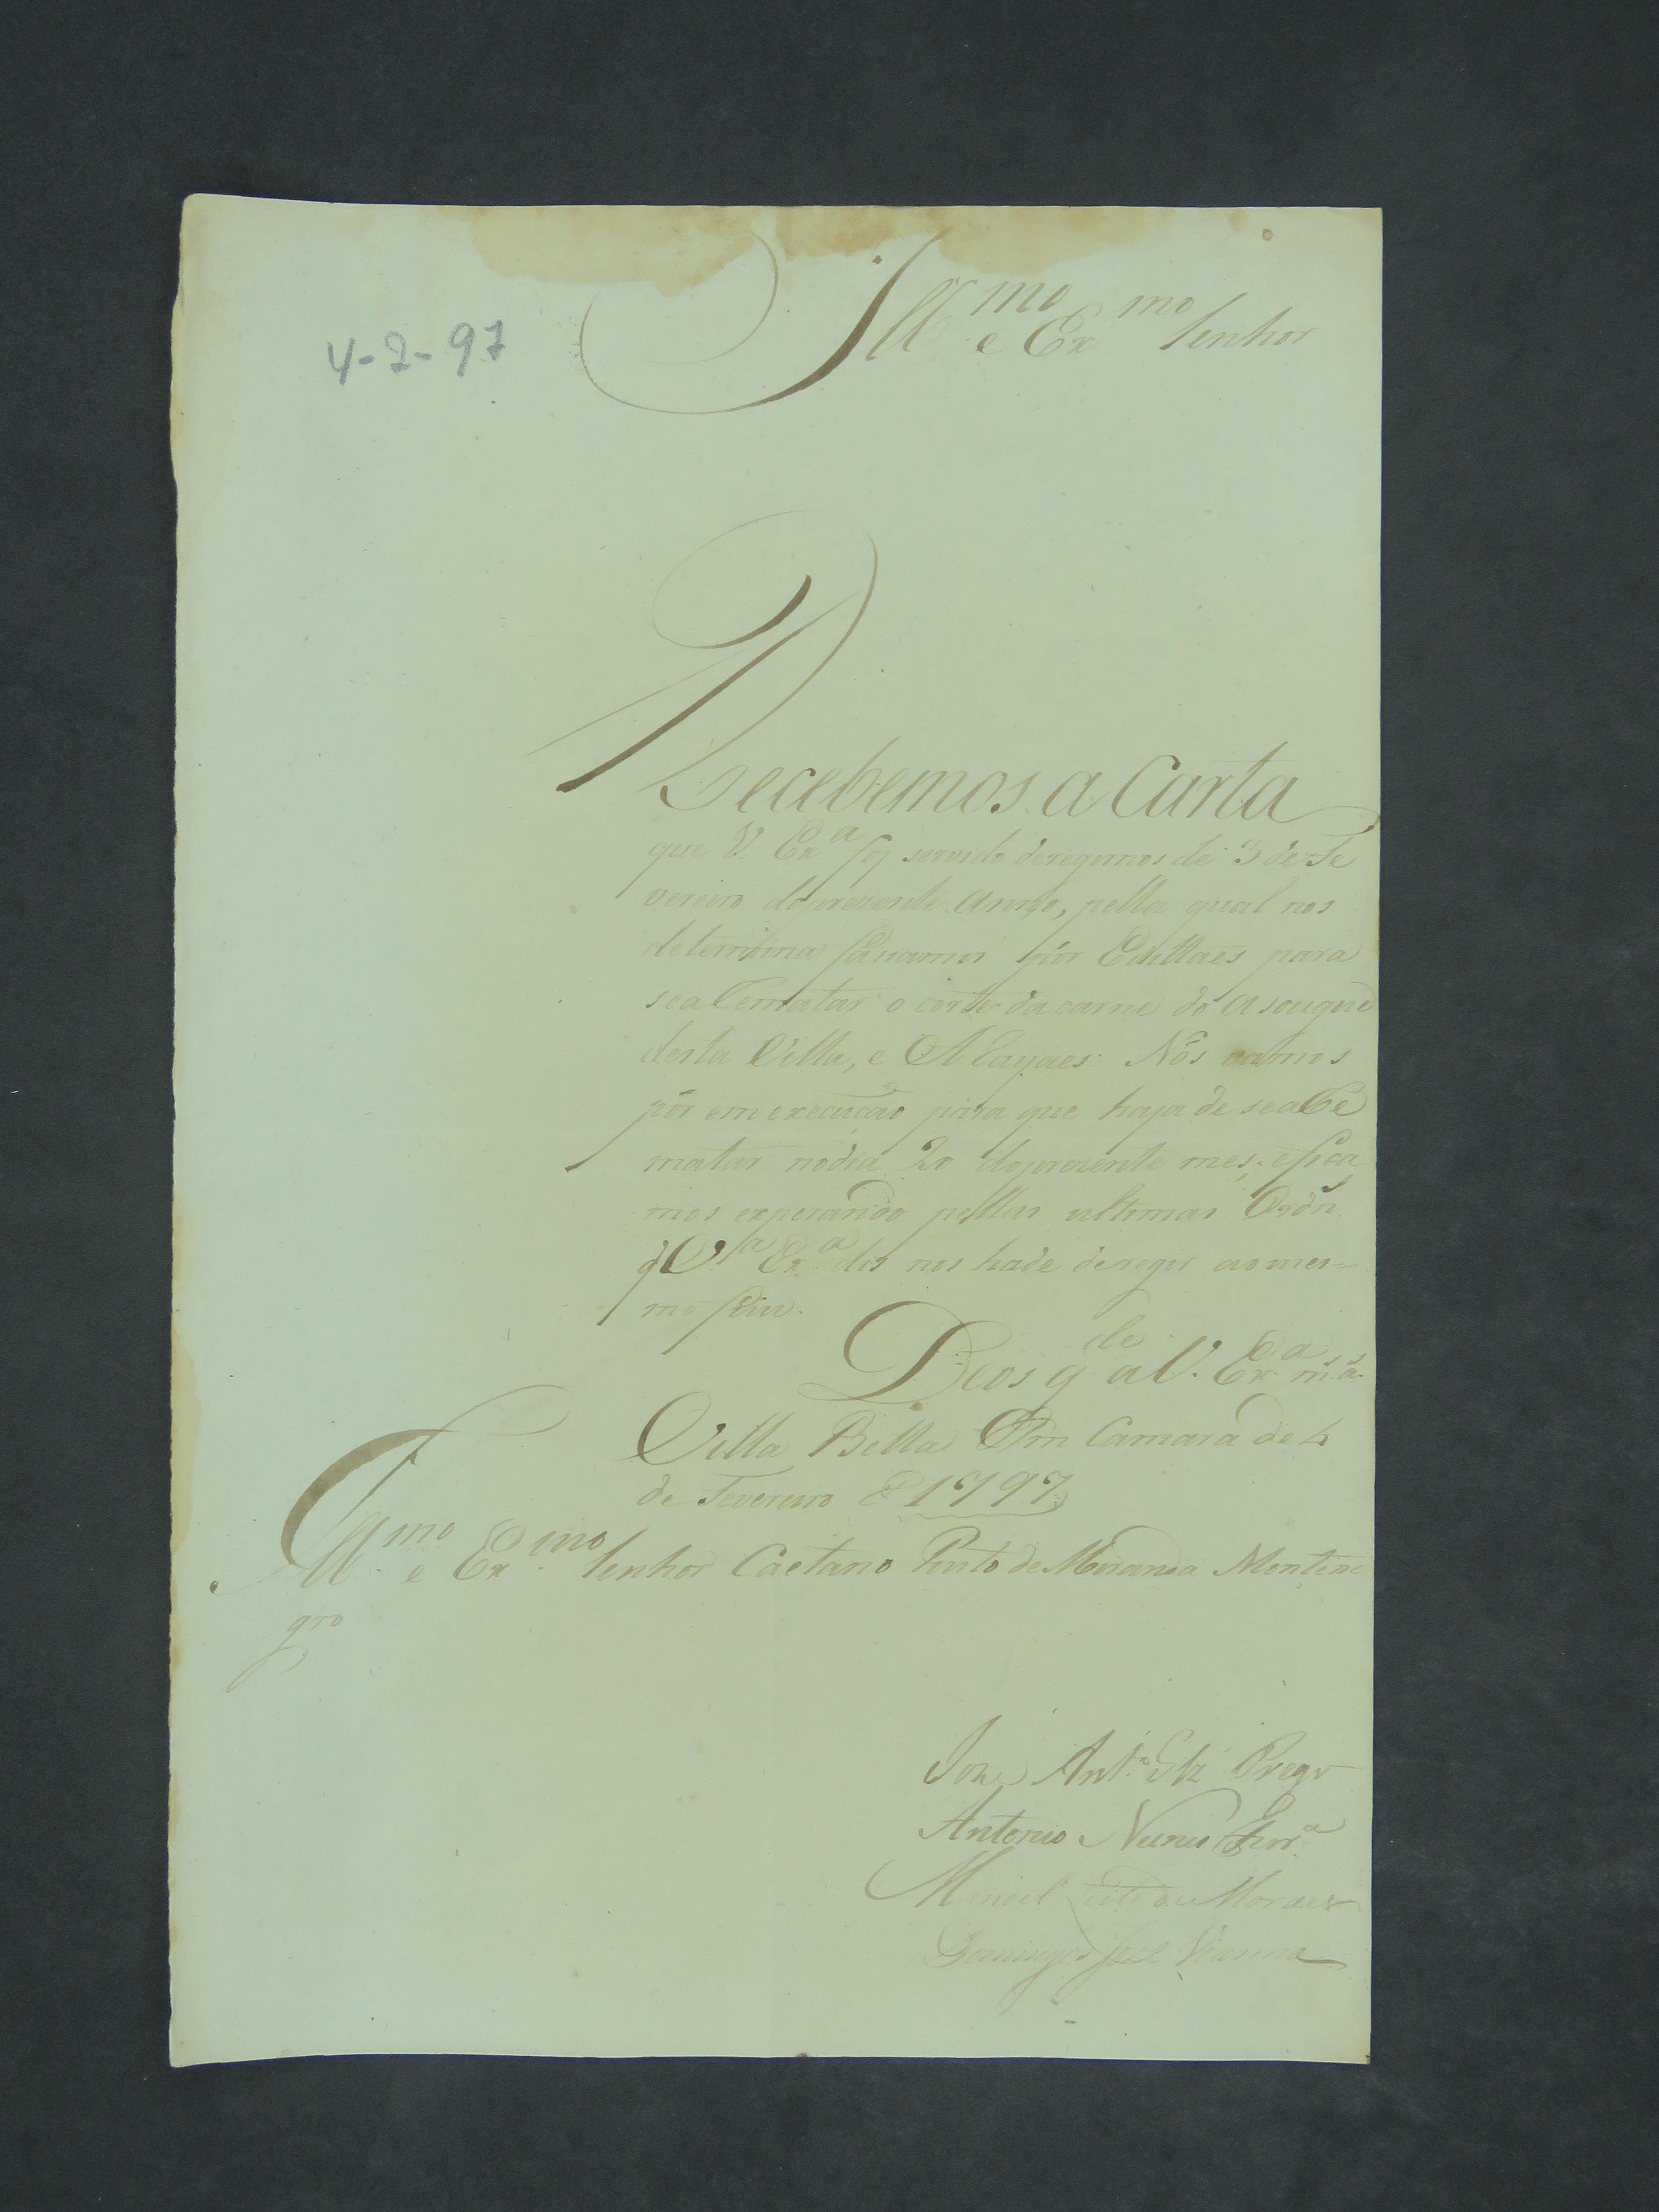 Ill.mo e Ex.mo Senhor
4-2-97
Recebemos a Carta
que V. Ex.a foy servido deregirnos de 3 de Fe
vereiro do prezente anno, pella qual nos
determina façamos por Edittaes para
se aRematar o corte da carne do Asougue
desta Villa, e ARayaes: Nós vamos
pór em execução para que haja de se aRe
matar no dia 20 do prezente mes, e fica
mos experando pellas ultimas Ordn.s
q V.a Ex.a dis nos hade deregir ao mes=
mo fim.
Deos g.de a V. Ex.a m.s a.s
Villa Bella Em Camara de 4
de Fevereiro de 1797
Ill.mo e Ex.mo Senhor Caetano Pinto de Miranda Montene
gro
Ant.o Prego
Antonio Nunes Ferr.a
Manoel Leite de Moraes
Domingos José Vianna